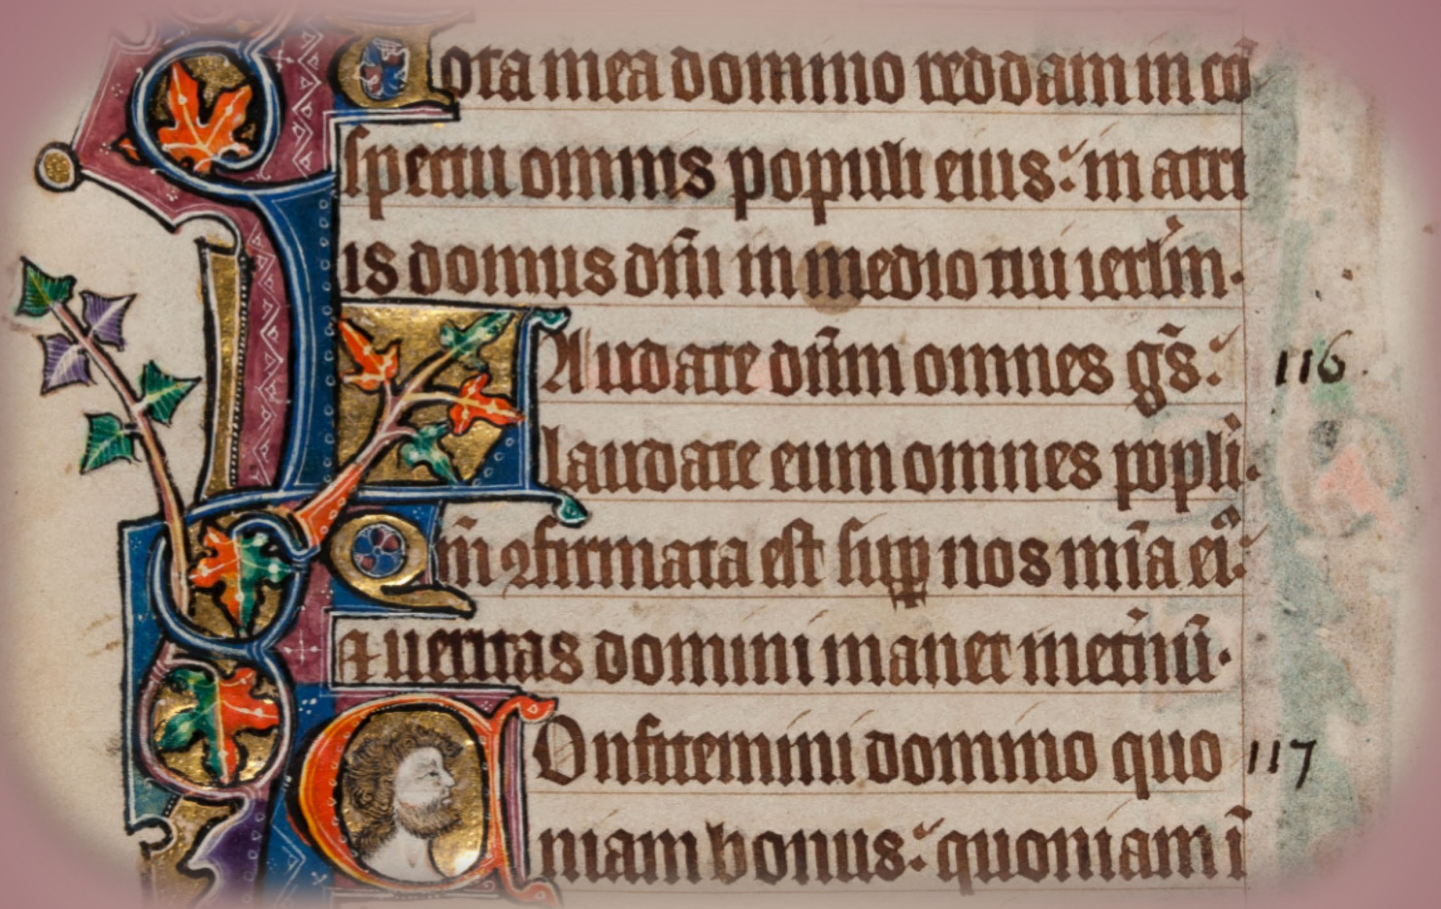 Vota mea domino reddam in cō
spectu omnis populi eius: in atri
is domus dn̄i in medio tui ierlm̄.
LAudate dn̄m omnes gs̄: 116.
laudate eum omnes poplī.
Qm̄ ꝯfirmata est suꝑ nos mīa ei᷒:
⁊ ueritas domini manet inet̄nū.
COnfitemini domino quo 117
niam bonus: quoniam ī